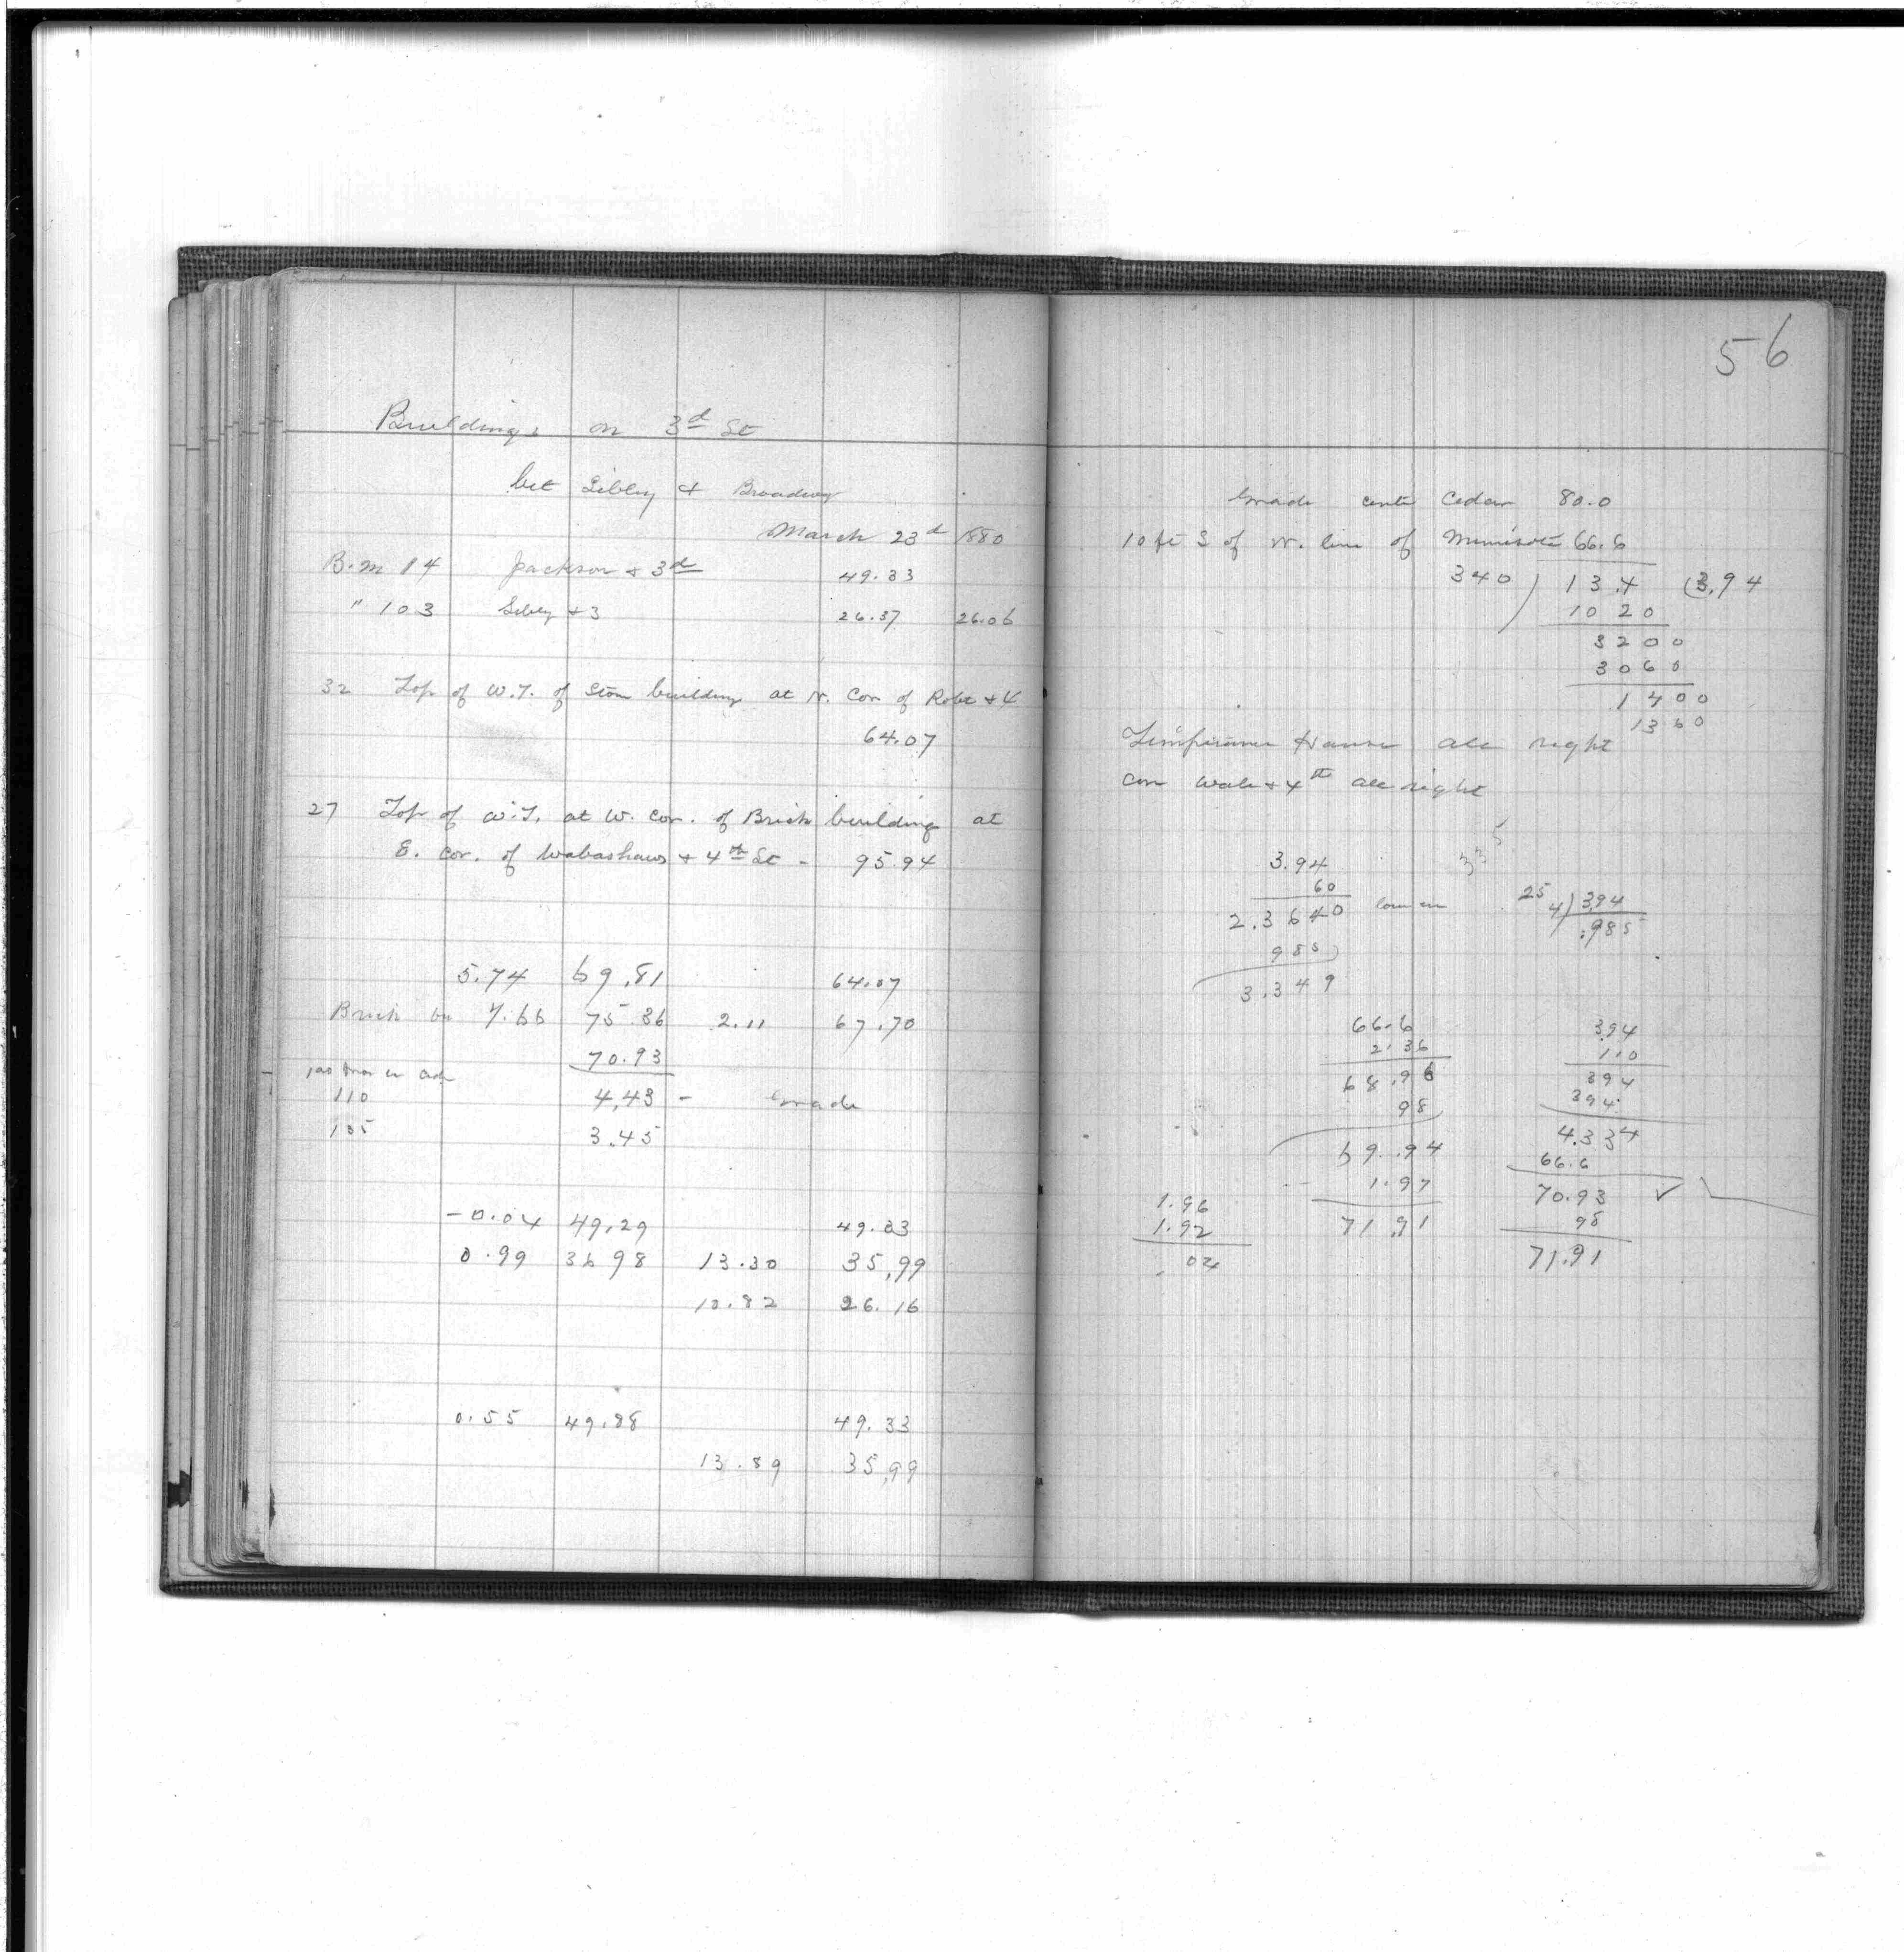 Buildings on 3d St
bet Sibley & Broadway
March 23d 1880
B.M 14 Jackson & 3d 49.33
" 103 Sibley & 3 26.37 26.06
32 Top of W.T. of Stone building at N. Cor of Robt & 4
64.07
27 Top of W.T. at W. Cor. of Brick building at
E. Cor. of Wabashaw & 4th St - 95.94
5.74 69.81 64.07
Brick 7.66 75.36 2.11 67.70
70.93
110 4,43 - Grade
135 3.45
-0.04 49,29 49.33
0.99 36 98 13.30 35,99
10.82 26.16
0.55 49.88 49.33
13.89 35,99
56
Grade cente Cedar 80.0
10 ft S of N. line of Minnisota 66.6
340 ) 13.4 (3,94
10 20
3200
3060
1400
1360
House all right
Cor Wab & 4th all right
335
3.94
60
2.3640
985
3.349
25
4) 3,94
.985
66.6
2.36
68.96
98
69.94
1.97
71.91
3.94
110
394
394
4.334
66.6
70.93 ✓
98
71.91
1.96
1.92
04